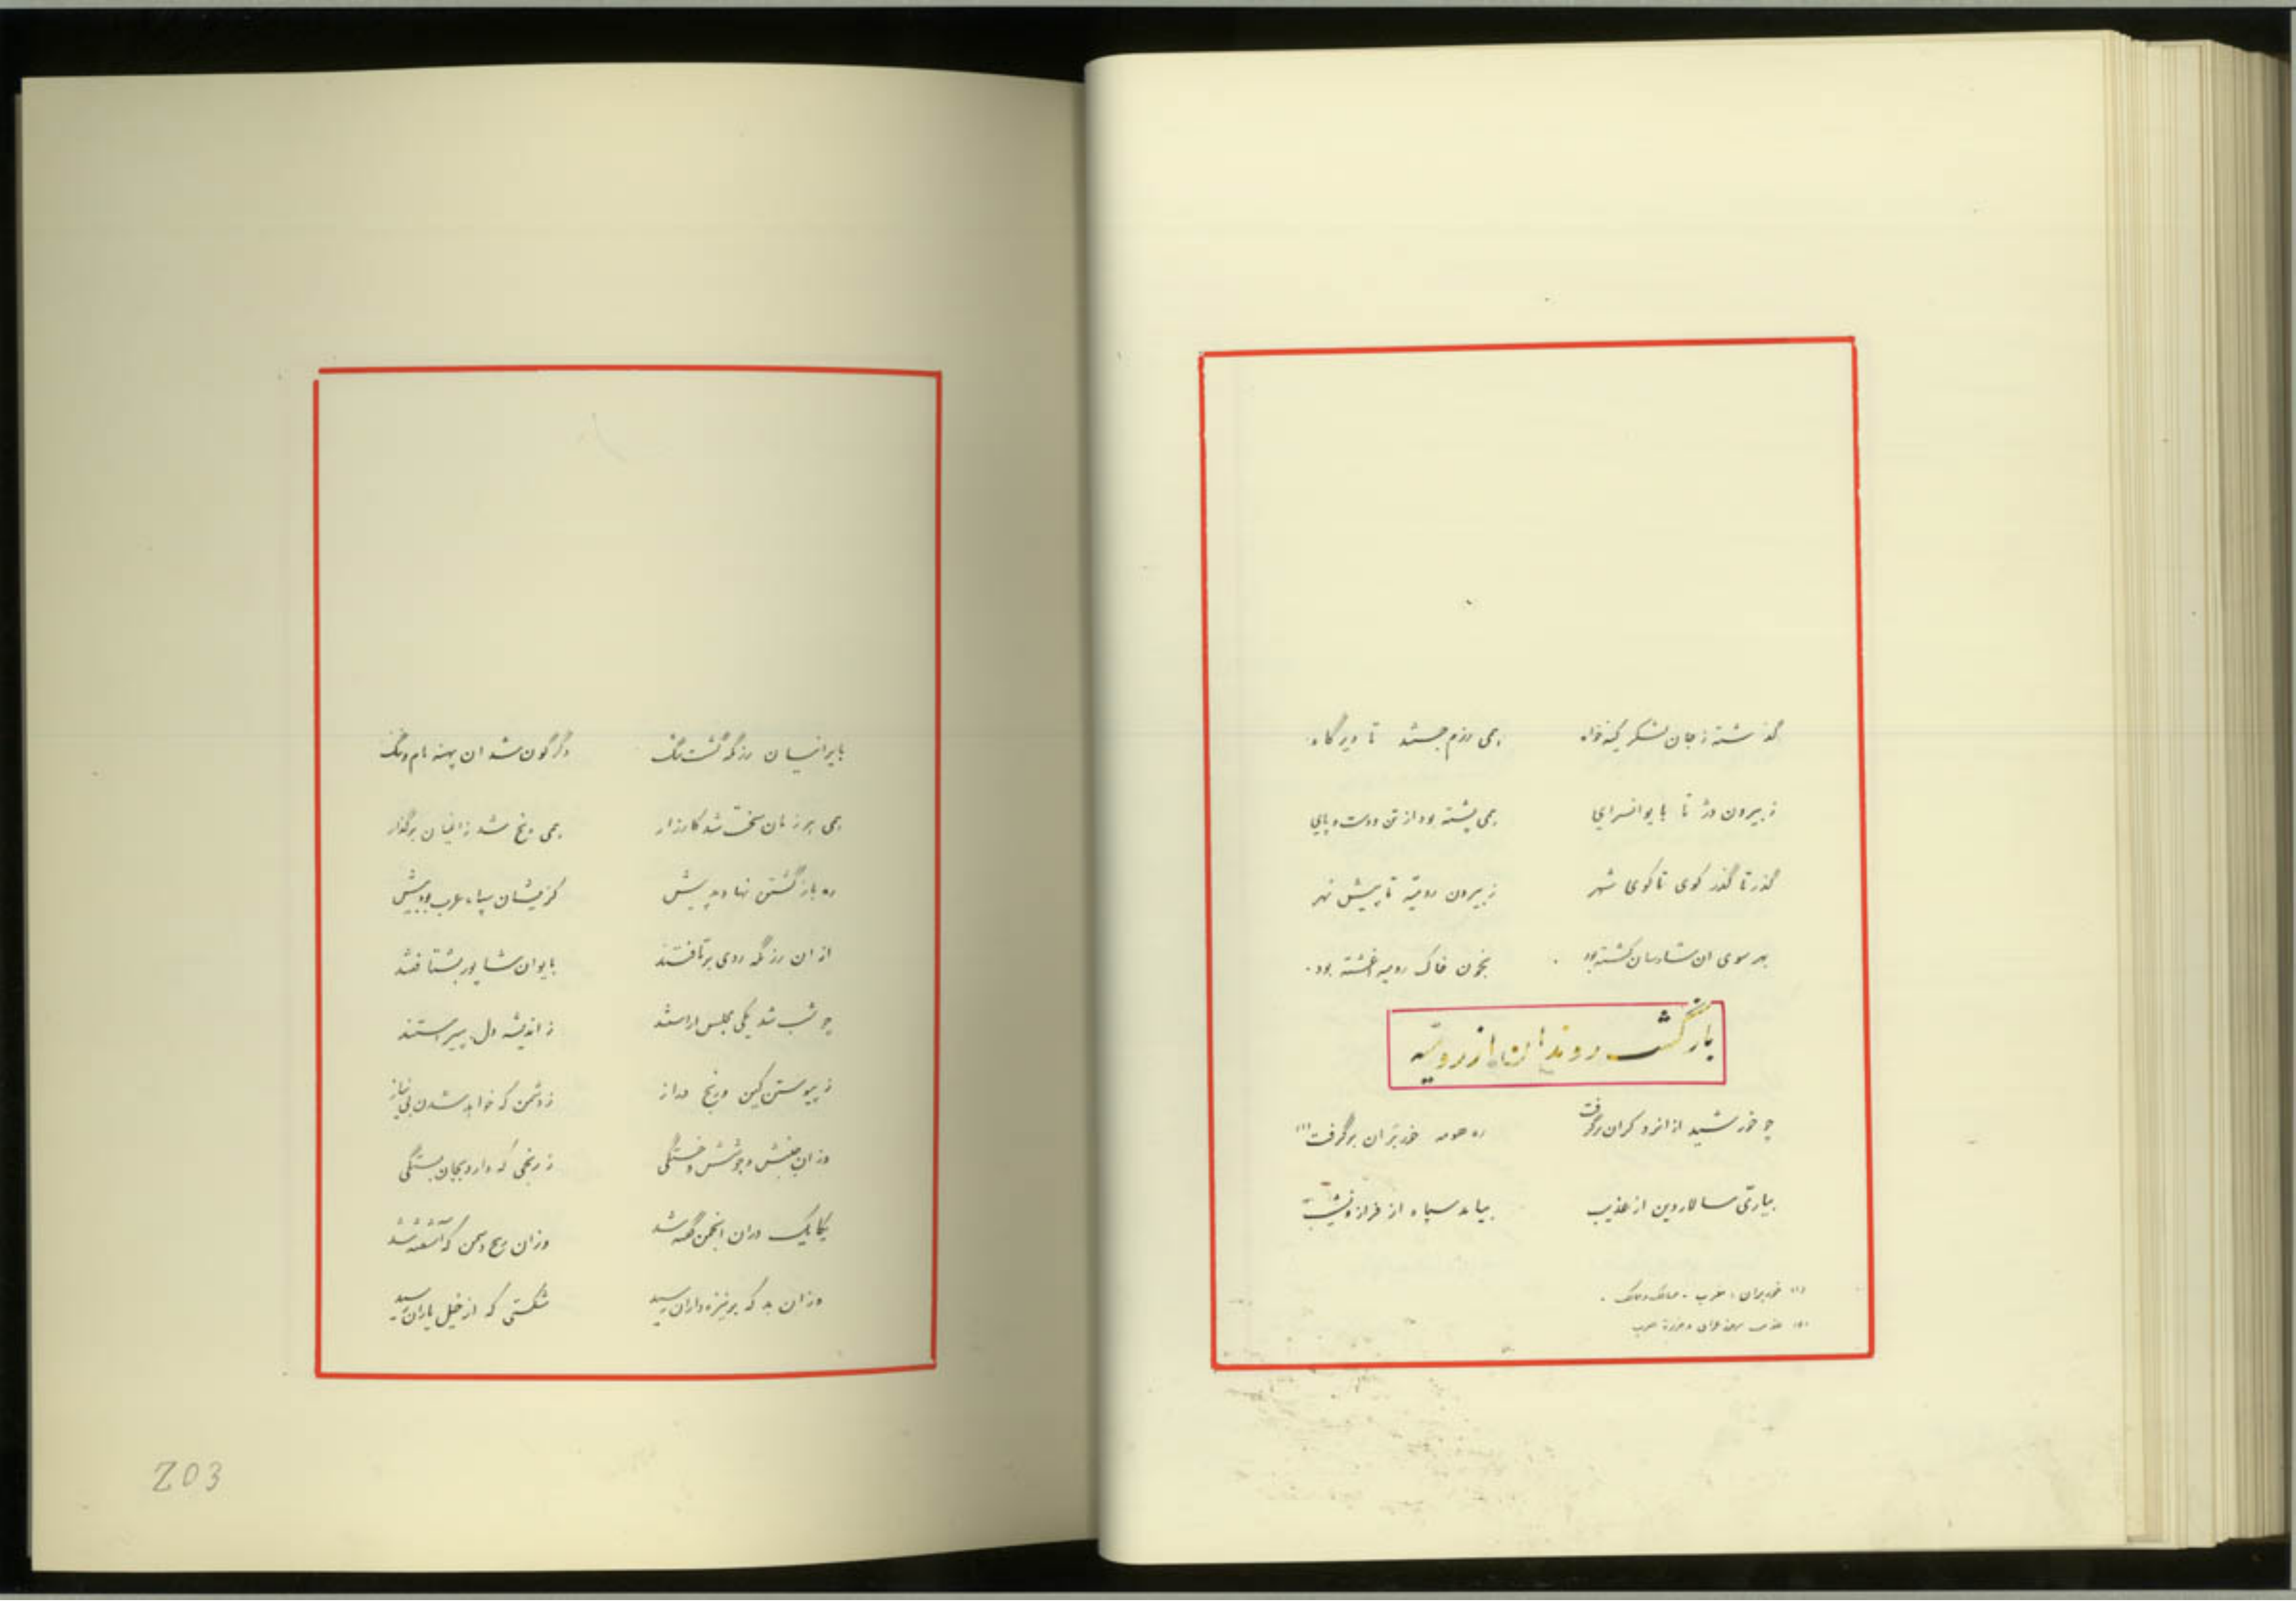 گذشته ز جان لشکر کینه‌خواه همی رزم جستند تا دیرگاه
ز بیرون دژ تا بایوانسرای همی پشته بود از تن و دست و پای
گذر تا گذر کوی تا کوی شهر ز بیرون رومیّه تا پیش نهر
بهر سوی ان شارسان کشته بود بخون خاک رومیه اغشته بود
بازگشت روندان از رومیّه
چو خورشید از انرو کران برگرفت ره حومه خوربران برگرفت (۱)
بیاریّ سالار دین از عذیب بیامد سپاه از فراز و نشیب
(۱) خوربران : مغرب -
بایرانیان رزمگه گشت تنگ دگرگون شد ان پهنه نام و ننگ
همی هر زمان سخت شد کارزار همی رنج شد
ره بازگشتن نهادند پیش کزیشان سپاه عرب بود بیش
از ان رزمگه روی برتافتند بایوان شاپور بشتافتند
چو شب شد یکی مجلس اراستند ز اندیشه دل بپیراستند
ز پیوستن کین و رنج دراز ز دشمن که خواهد شدن بی نیاز
وزان جنبش و جوشش و خستگی ز رنجی که دارد بجان بستگی
یکایک دران انجمن گفته شد وزان رنج دشمن که آشفته شد
وزان بد که بر نیزه‌داران رسید شکستی که از خیل یاران رسید
203